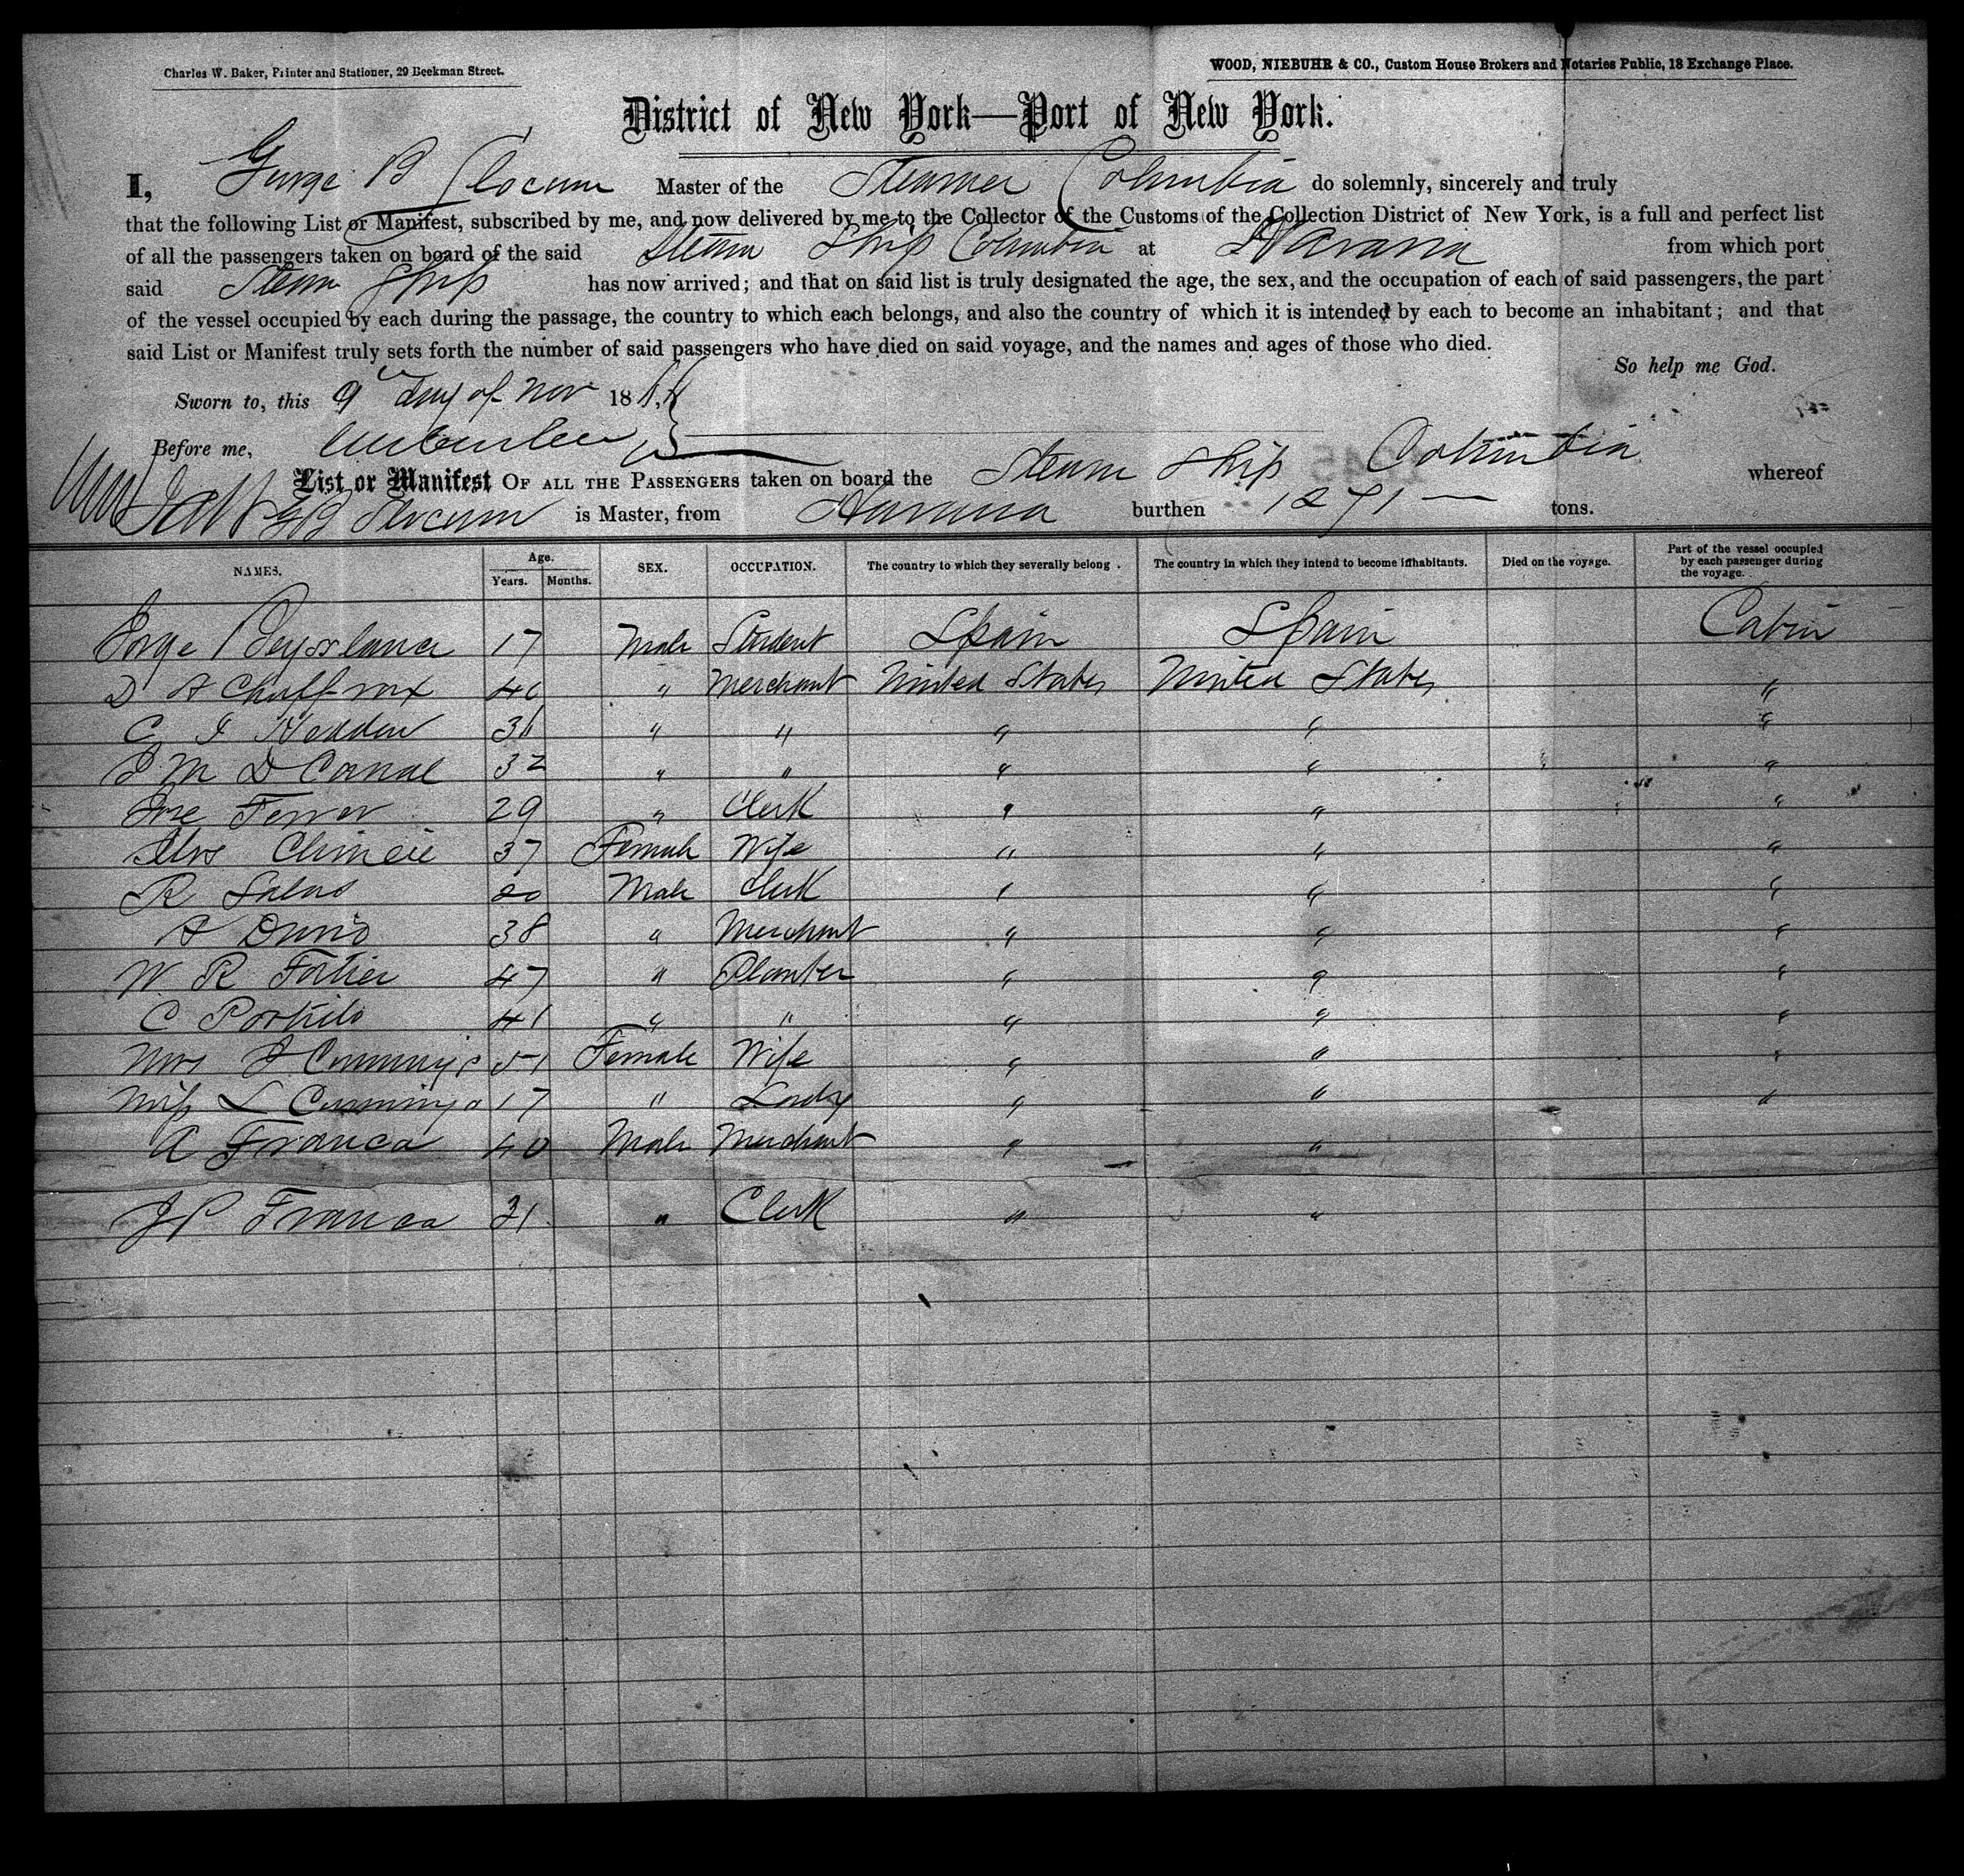 Charles W. Baker, Printer and Stationer, 29 Beekman Street.
WOOD, NIEBUHR & CO., Custom House Brokers and Notaries Public, 18 Exchange Place.
District of New York—Port of New York.
I, George B Slocum Master of the Steamer Columbia do solemnly, sincerely and truly
that the following List or Manifest, subscribed by me, and now delivered by me to the Collector of the Customs of the Collection District of New York, is a full and perfect list
of all the passengers taken on board of the said Steam Ship Columbia at Havana from which port
said Steam Ship has now arrived; and that on said list is truly designated the age, the sex, and the occupation of each of said passengers, the part
of the vessel occupied by each during the passage, the country to which each belongs, and also the country of which it is intended by each to become an inhabitant; and that
said List or Manifest truly sets forth the number of said passengers who have died on said voyage, and the names and ages of those who died.
So help me God.
Sworn to, this 9 day of Nov 1866
Before me,
List or Manifest OF ALL THE PASSENGERS taken on board the Steam Ship Columbia whereof
G B Slocum is Master, from Havana burthen 1271 tons.
NAMES. Age. Years. Months. SEX. OCCUPATION. The country to which they severally belong. The country in which they intend to become inhabitants. Died on the voyage. Part of the vessel occupied by each passenger during the voyage.
17 Male Student Spain Spain Cabin
D A 40 " Merchant United States United States "
C I Hadden 36 " " " " "
J M D Canal 32 " " " " "
Jose Ferrer 29 " Clerk " " "
Mrs 37 Female Wife " " "
R Salas 20 Male Clerk " " "
A Davis 38 " Merchant " " "
W R Fortier 47 " Planter " " "
C Portilo 41 " " " " "
Mrs J Cummings 51 Female Wife " " "
Miss L Cummings 17 " Lady " " "
A Franca 40 Male Merchant " "
J P Franca 31 " Clerk " "